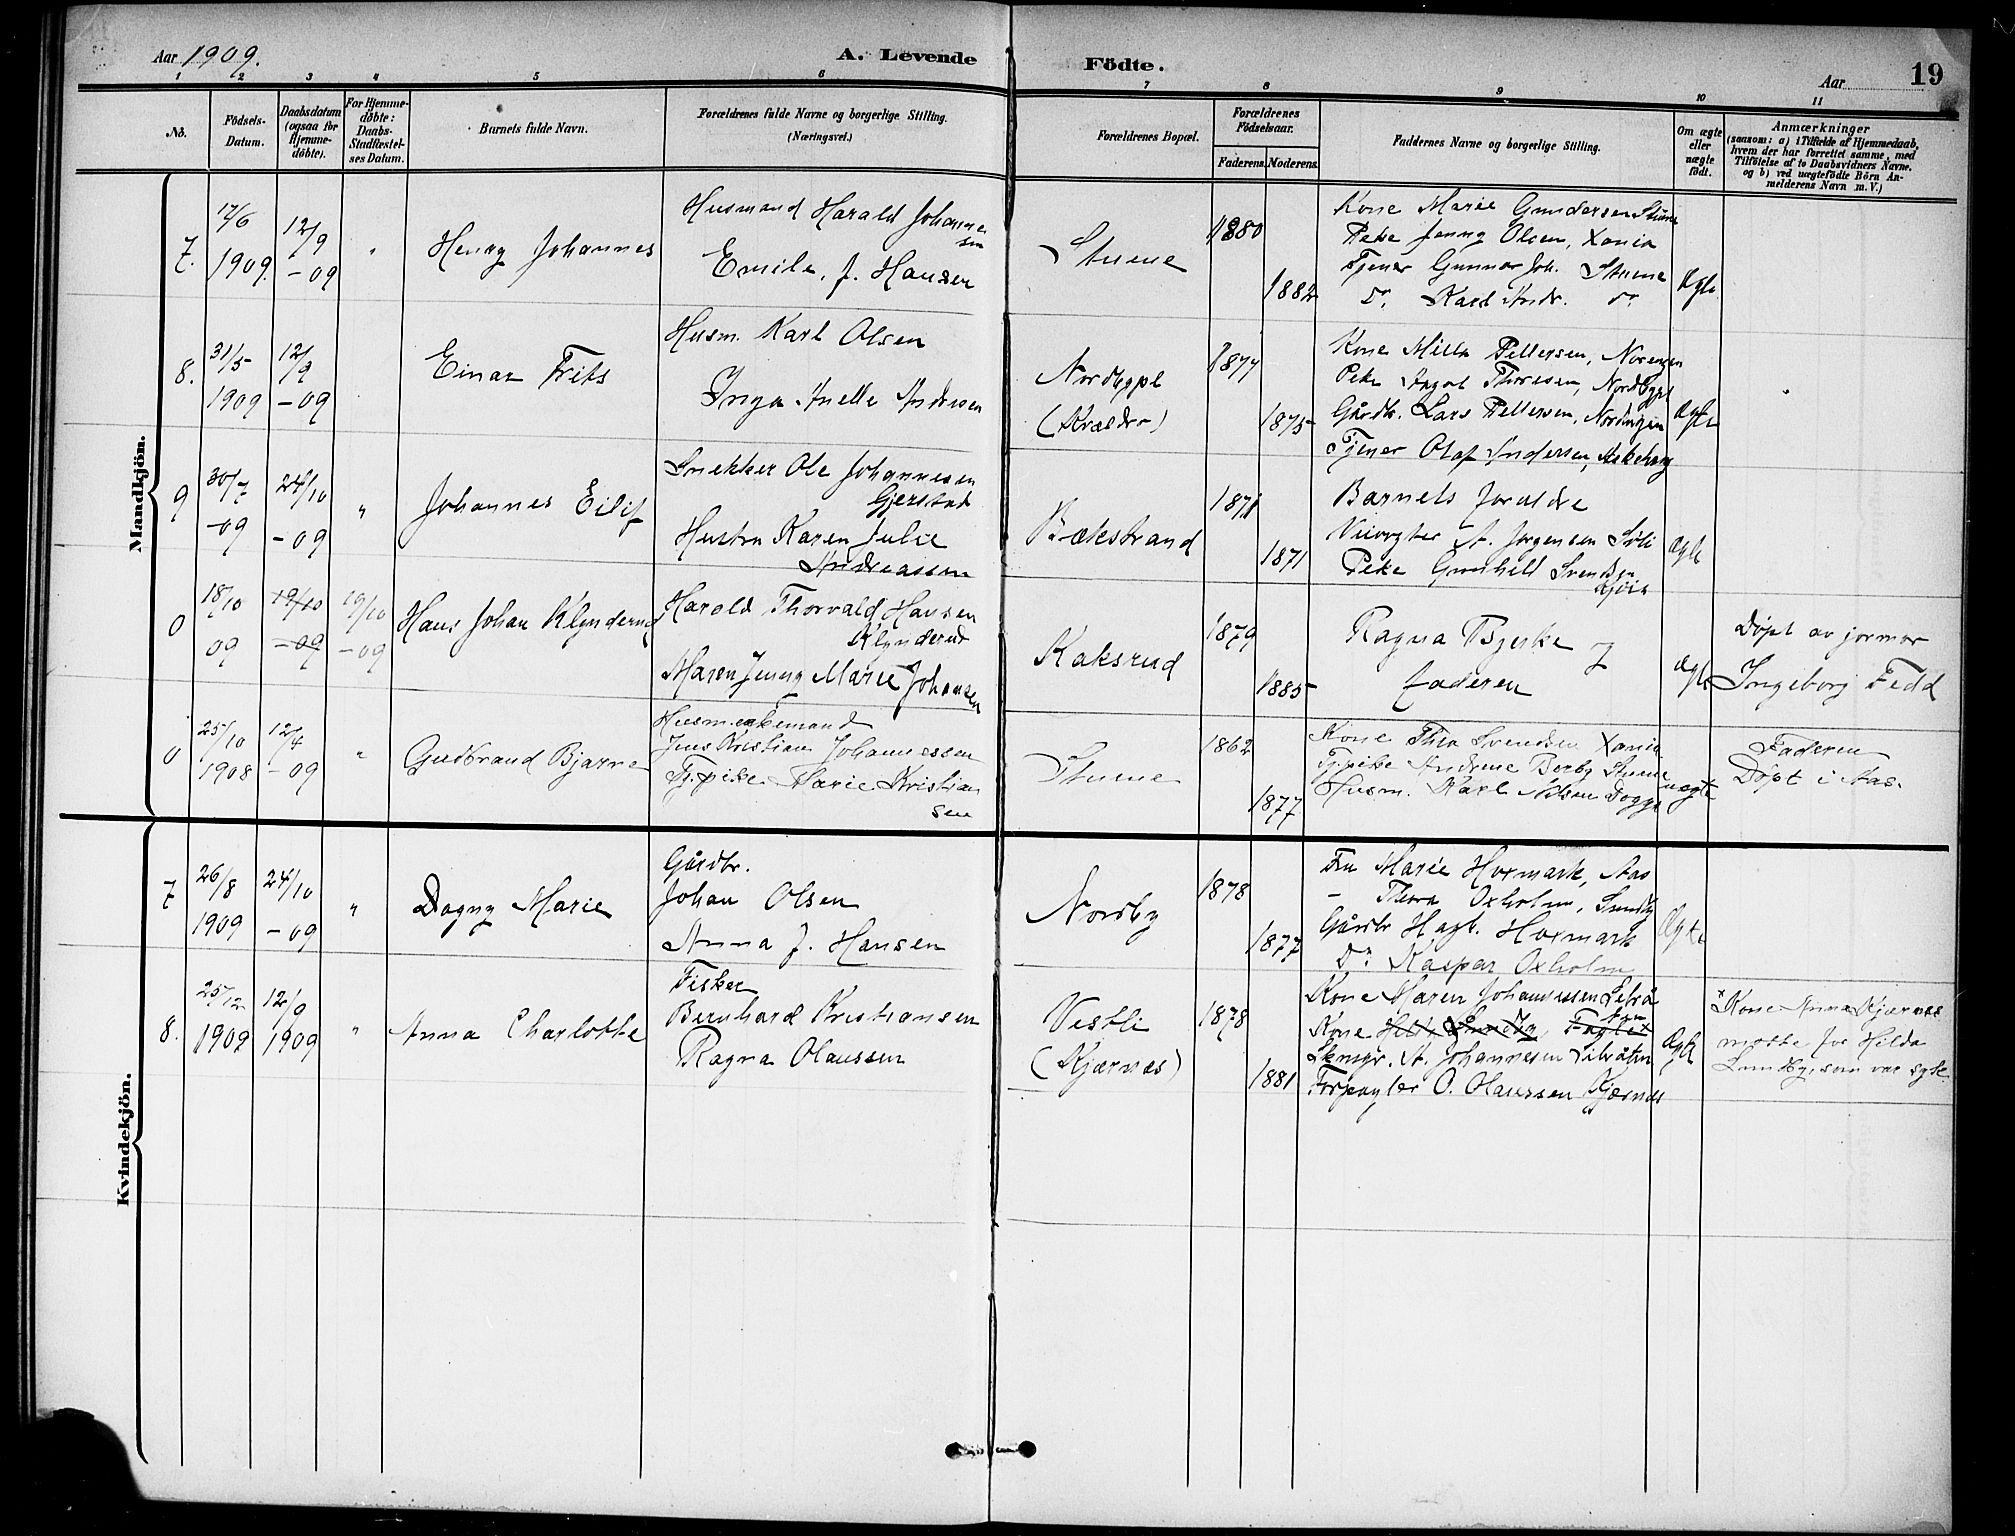 Aar 1909.
A. Levende Födte.
Aar
19
1 2 3 4 5 6 7 8 9 10 11
No.
Födsels-Datum.
Daabsdatum (ogsaa for Hjemme-döbte).
For Hjemme-döbte: Daabs-Stadfæstel-ses Datum.
Barnets fulde Navn.
Forældrenes fulde Navne og borgerlige Stilling.
(Næringsvei.)
Forældrenes Bopæl.
Forældrenes Födselsaar.
Faderens. Moderens.
Faddernes Navne og borgerlige Stilling.
Om ægte eller uægte födt.
Anmærkninger
(saasom: a) i Tilfælde af Hjemmedaab,
hvem der har forrettet samme, med
Tilföielse af to Daabsvidners Navne.
og b) ved uegtefödte Börn An-
melderens Navn m. V.)
Mandkjön.
7. 17/6 1909. 12/9 -09 "
Henry Johannes
Husmand Harald Johanne
sen
Emilie J. Hansen
Stuene
1880
1882
Kone Marie Gundersen Stuene
Peke Jenny Olsen, Xania
Tjener Gunnar Joh. Stuene
Do. Karl Andr. do
Ægte
8. 31/5 1909 12/9 -09
Einar Frits
Husm. Karl Olsen
Inga Anette Andersen
Nordbypl
(Kræsdro)
1877
1875
Kone Milla Pettersen, Norengen
Peke Thoresen, Nordbypl
Gårdb. Lars Pettersen, Nordengen
Tjener Olaf Andersen, Askehaug
Ægte
9 30/7 -09 24/10 -09 "
Johannes Eilif
Snekker Ole Johannesen
Gjerstad
Hustru Karen Julie
Andreassen
Bækstrand
1871
1871
Barnets forældre
A. Jørgensen Solli
Peke Gunhild Svendsen
ægte
0 18/10 09 19/10 -09 19/10 -09
Hans Johan Klynderud
Harald Thorvald Hansen
Klynderud
Maren Jenny Marie Johansen
Kaksrud
1879
1885
Ragna Bjerke
faderen
ægte
Døpt av jormor
Ingeborg Fedd
0 25/10 1908 12/4 -09 "
Gudbrand Bjarne
Husm. enkemand
Jens Kristian Johannessen
Tj.pike Marie Kristian
sen
Stuene
1862
1877
Kone Thea Svendsen Xania
Tj.pike Andrene Berby Stuene
Husm. Karl Nilsen
uægte
Faderen
Døpt i Aas.
Kvindekjön.
7 26/8 1909 24/10 -09 "
Dagny Marie
Gårdbr.
Johan Olsen
Anna J. Hansen
Nordby
1878
1877
Fru Marie Hoxmark, Aas
- Thora Oxholm, Sundby
Gårdbr Hagb. Hoxmark
Do Kaspar Oxholm
Ægte
8. 25/12 1909 12/9 1909 "
Anna Charlotte
Fisker
Bernhard Kristiansen
Ragna Olaussen
Vestli
(Kjærnæs)
1878
1881
Kone Maren Johannessen
Kone Hilda Lundby,
A. Johannesen
Forpagter O. Olaussen Kjærnæs
Ægte
x Kone Anna Kjærnæs
møtte for Hilda
Lundby, som var syk